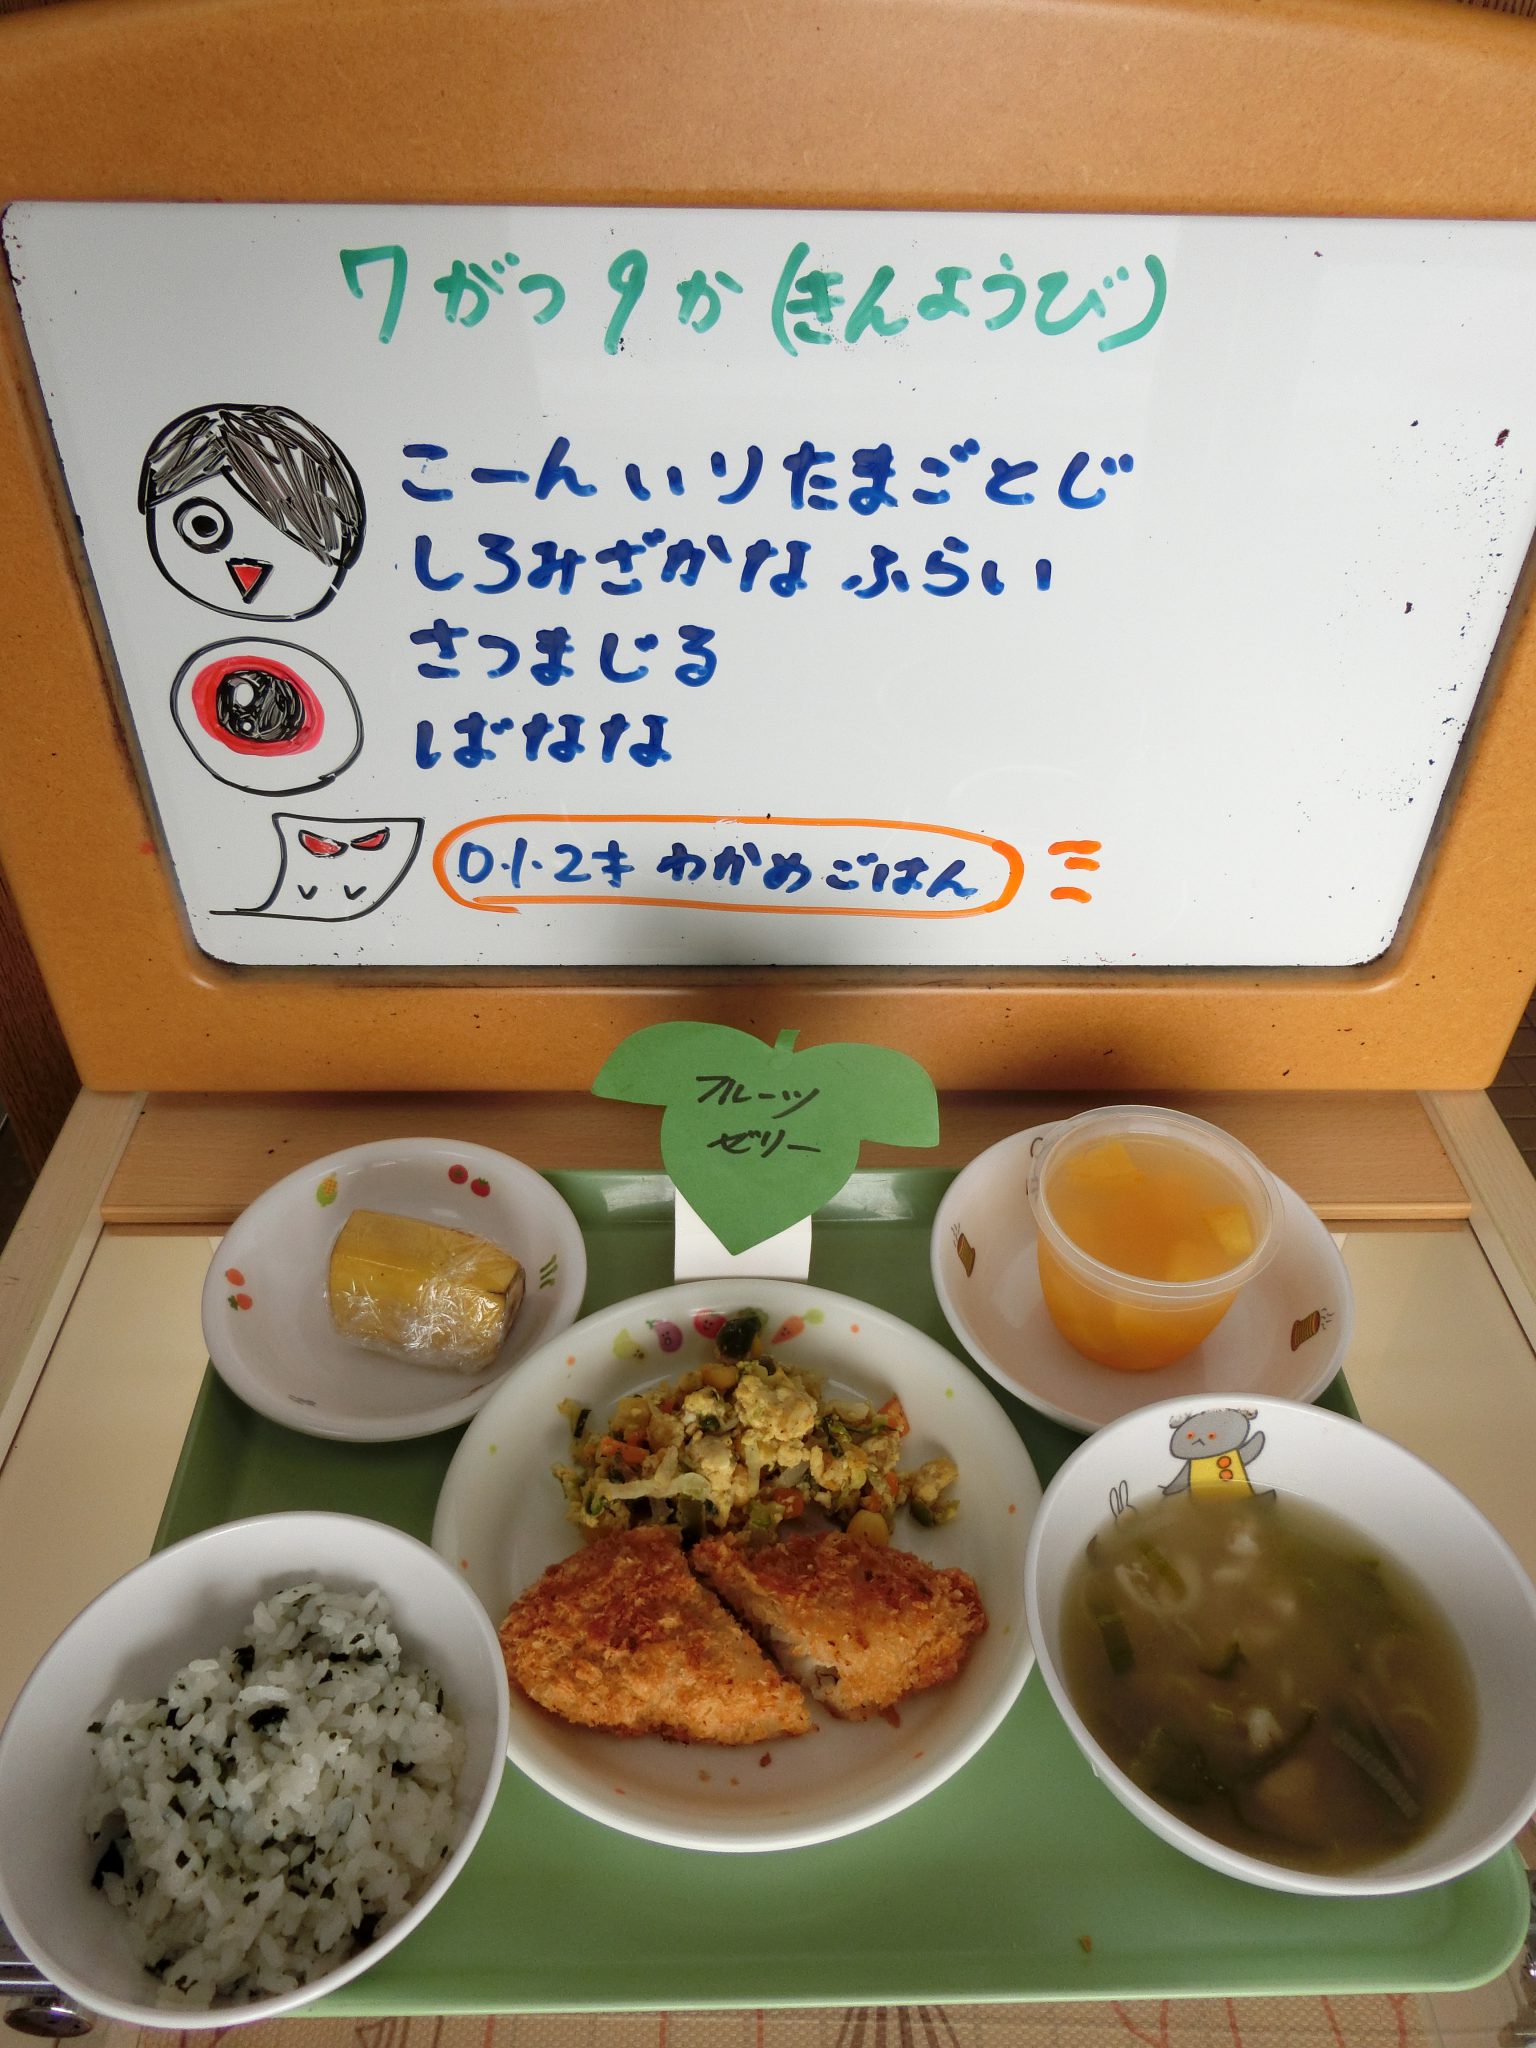 7がつ9か(きんようび)
こーんいりたまごとじ
しろみざかなふらい
さつまじる
ばなな
0.1.2さい わかめごはん
フルーツ
ゼリー